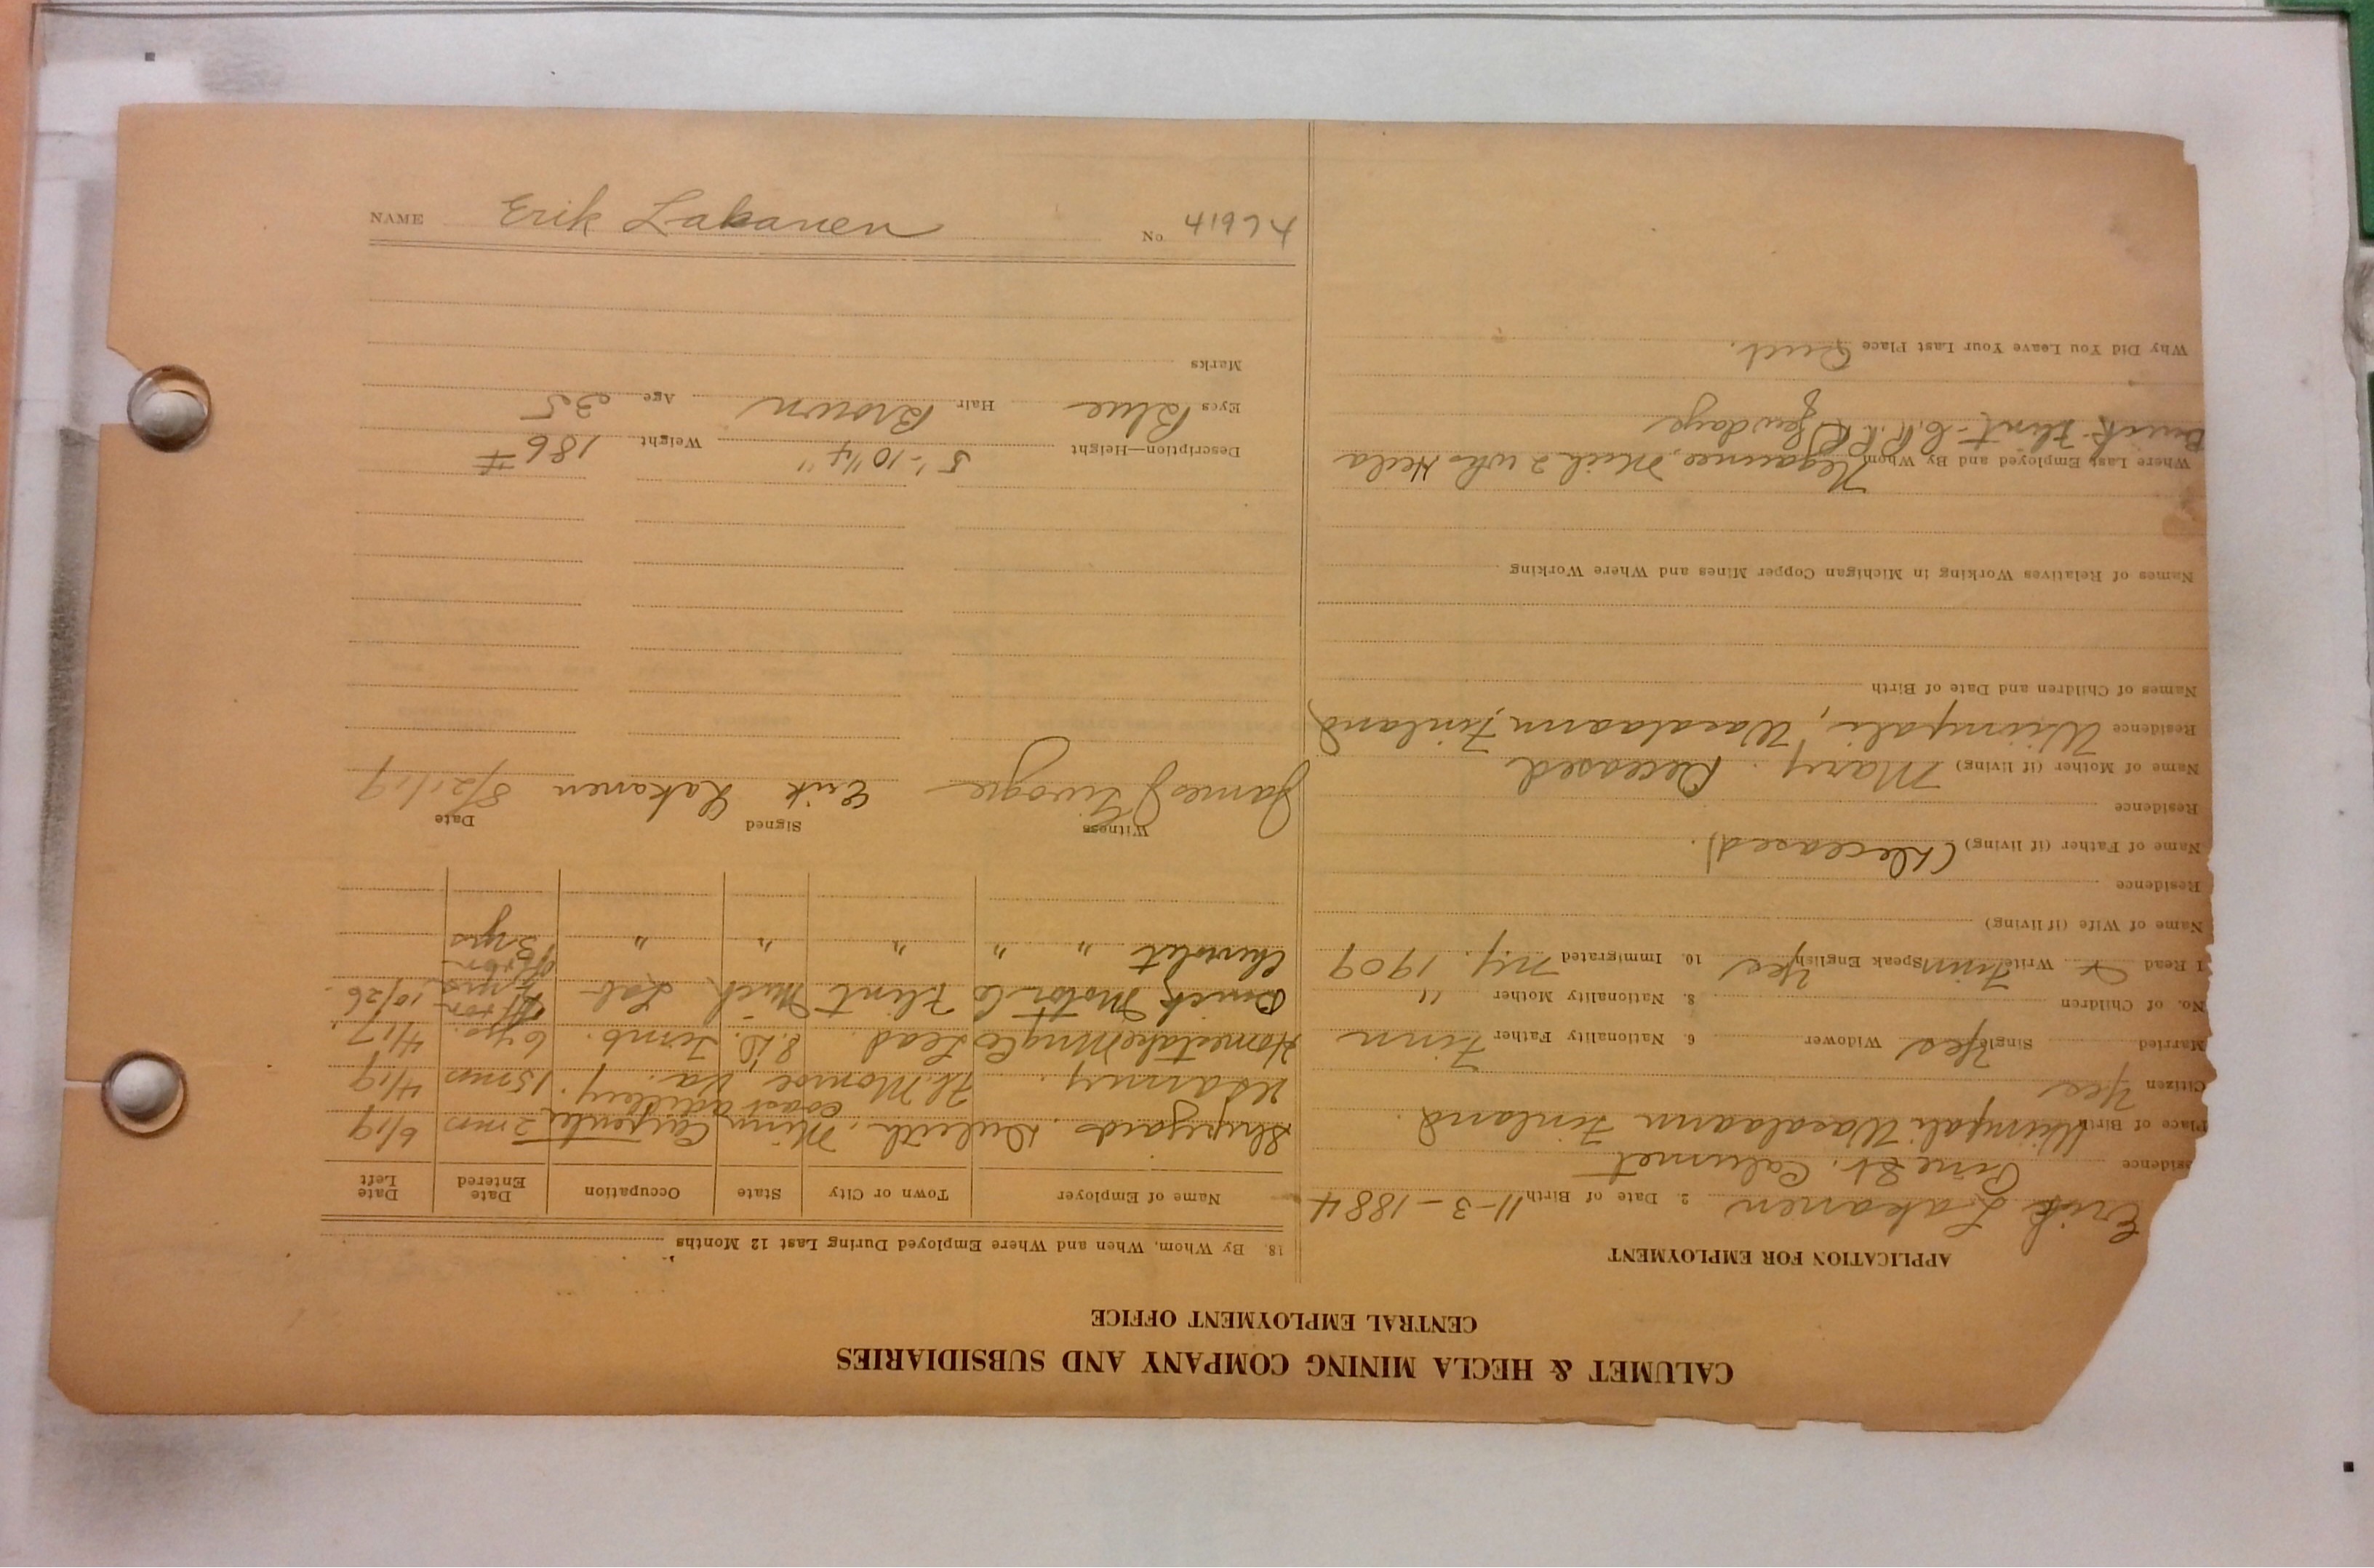 CALUMET & HECLA MINING COMPANY AND SUBSIDIARIES
CENTRAL EMPLOYMENT OFFICE
APPLICATION FOR EMPLOYMENT
Erik Lakanen 2. Date of Birth 11-3-1884
sidence Pine St. Calumet
Place of Birth Wiimpali Waasalaann Finland.
Citizen Yes
Married Single Yes Widower 6. Nationality Father Finn
No. of Children 8. Nationality Mother "
I Read & Write Finn Speak English Yes 10. Immigrated N.Y. 1909
Name of Wife (if living)
Residence
Name of Father (if living) (Deceased).
Residence
Name of Mother (if living) Mary. Deceased
Residence Wiimpali, Waasalaann, Finland
Names of Children and Date of Birth
Names of Relatives Working in Michigan Copper Mines and Where Working
Where Last Employed and By Whom Negaunee, Mich 2 wks Hecla
Buick Flint - few days
Why Did You Leave Your Last Place Quit.
18. By Whom, When and Where Employed During Last 12 Months
Name of Employer Town or City State Occupation Date Entered Date Left
Shipyards. Duluth, Minn Carpenter 2 mos 6/19
US Army. Ft. Monroe Va. Coast artillery. 15 mos 4/19
Homestake Mng Co Lead. S.D. Timb. 6 yrs. 4/17.
Buick Motor Co Flint Mich Lab 10/26.
Chevrolet " " " " " 3 yrs
Witness Signed Date
James J Erik Lakanen 8/21/19
Description—Height 5'-10 1/4" Weight 186 #
Eyes Blue Hair Brown Age 35
Marks
NAME Erik Lakanen No